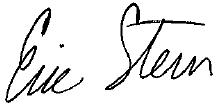 Eric Stern